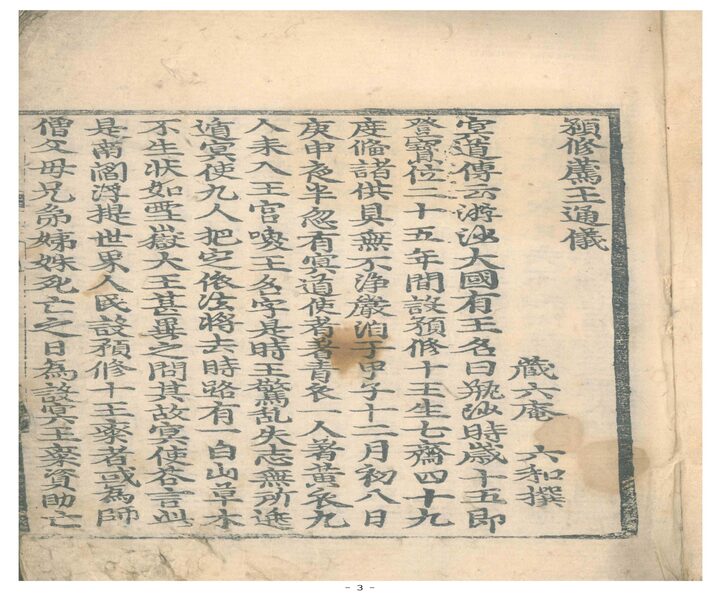 預修薦王通儀
藏六庵 六和撰
冥道傳云游沙大國有王名曰甁沙時歲十五即
登寶位二十五年間設預修十王生七齋四十九
度俻諸供具無不淨嚴洎丁甲子十二月初八日
庚申夜半忽有冥道使者著青衣一人著黃衣九
人来入王宮喚王名字是時王驚乱失志無所逃
遁冥使九人把定依法將去時路有一白山草木
不生狀如雪嶽大王甚異之問其故冥使答言此
是南閻浮提世界人民設預修十王齋者或為師
僧父母兄弟姊妹死亡之日為設冥王齋資助亡
- 3 -